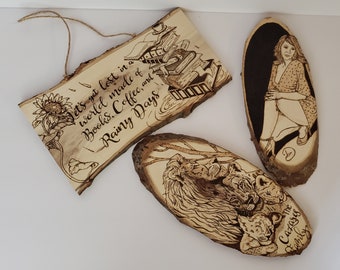 Let's get lost in a
world made of
Books, Coffee, and
Rainy Days